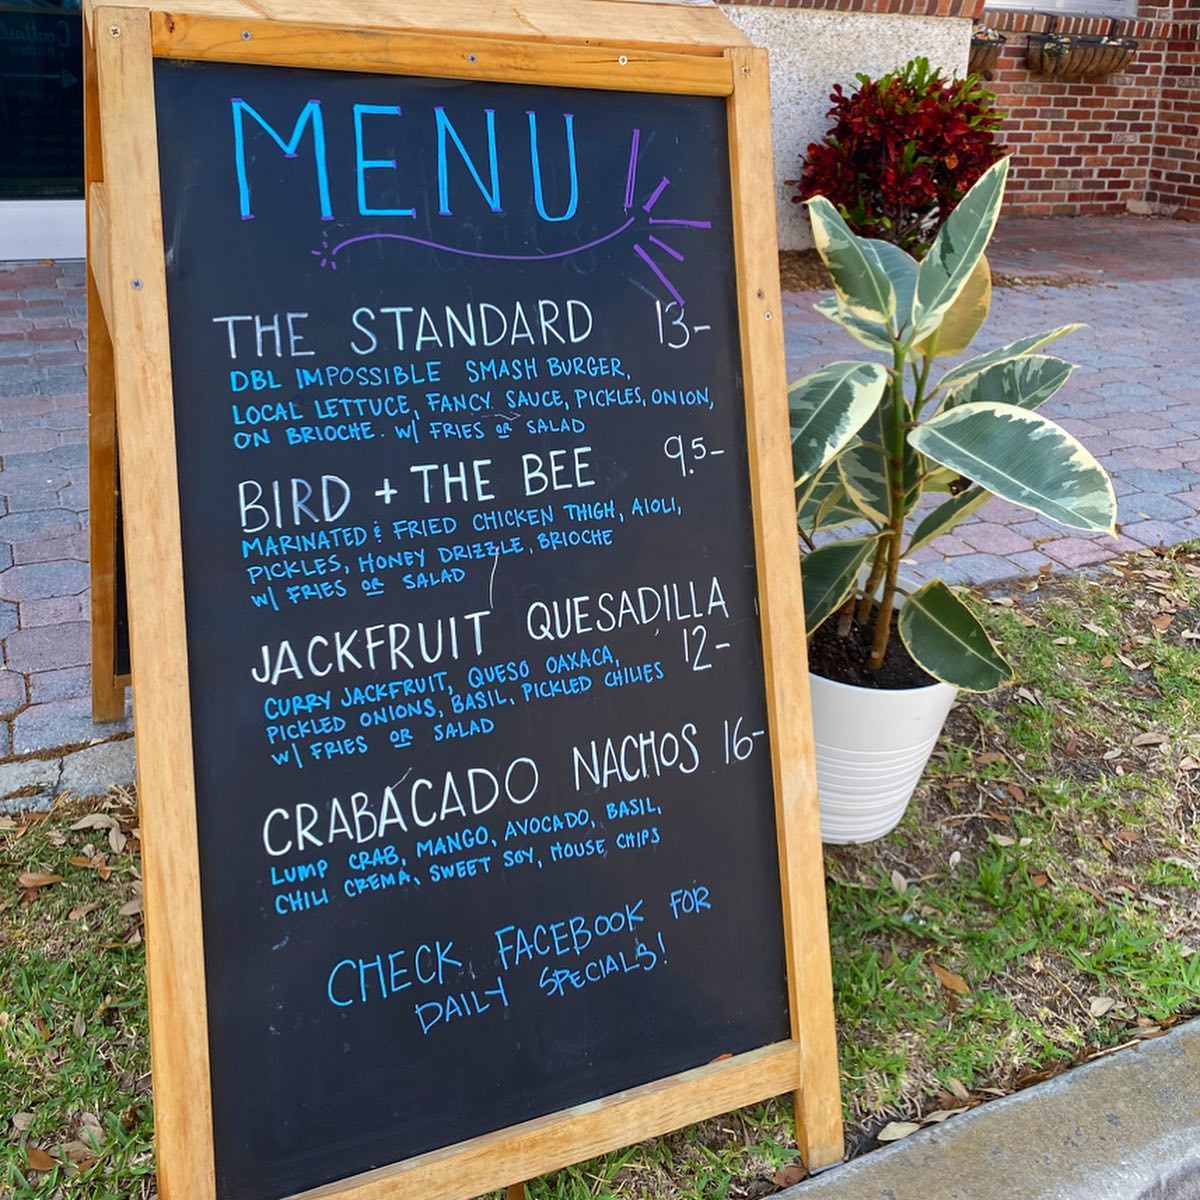 MENU
THE STANDARD 13-
DBL IMPOSSIBLE SMASH BURGER,
LOCAL LETTUCE, FANCY SAUCE, PICKLES, ONION,
ON BRIOCHE. W/ FRIES OR SALAD
BIRD + THE BEE 9.5-
MARINATED & FRIED CHICKEN THIGH, AIOLI,
PICKLES, HONEY DRIZZLE, BRIOCHE
W/ FRIES OR SALAD
JACKFRUIT QUESADILLA
12-
CURRY JACKFRUIT, QUESO OAXACA,
PICKLED ONIONS, BASIL, PICKLED CHILIES
W/ FRIES OR SALAD
CRABACADO NACHOS 16-
LUMP CRAB, MANGO, AVOCADO, BASIL,
CHILI CREMA, SWEET SOY, HOUSE CHIPS
CHECK FACEBOOK FOR
DAILY SPECIALS!